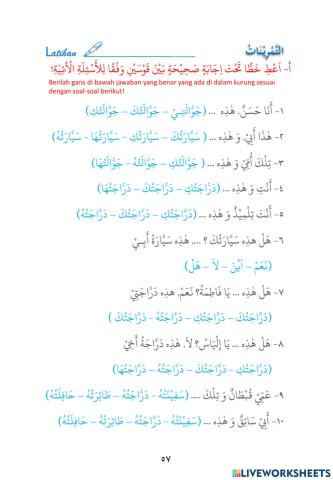 Latihan التَّمْرِيْنَاتُ
أ- اَعْطِ خَطًّا تَحْتَ اِجَابَةٍ صَحِيْحَةٍ بَيْنَ قَوْسَيْنِ وَفْقًا لِلْأَسْئِلَةِ الْأٰتِيَةِ!
Berilah garis di bawah jawaban yang benar yang ada di dalam kurung sesuai
dengan soal-soal berikut!
١- أَنَا حَسَنٌ. هٰذِهِ ... (جَوَّالَتِيْ – جَوَّالَتُكَ – جَوَّالَتُكِ)
٢- هٰذَا أَبِيْ. وَ هٰذِهِ ... (سَيَّارَتُكَ – سَيَّارَتُكِ – سَيَّارَتُهَا – سَيَّارَتُهُ)
٣- تِلْكَ أُمِّيْ وَ هٰذِهِ ... (جَوَّالَتُكِ – جَوَّالَتُهُ – جَوَّالَتُهَا)
٤- أَنْتِ وَ هٰذِهِ ... (دَرَّاجَتِيْ – دَرَّاجَتُكِ – دَرَّاجَتُكَ – دَرَّاجَتُهَا)
٥- أَنْتَ تِلْمِيْذٌ وَ هٰذِهِ ... (دَرَّاجَتِيْ – دَرَّاجَتُكِ – دَرَّاجَتُكَ – دَرَّاجَتُهُ)
٦- هَلْ هٰذِهِ سَيَّارَتُكَ ؟ .... هٰذِهِ سَيَّارَةُ أَبِيْ
(نَعَمْ – اَيْنَ – لَا – هَلْ)
٧- هَلْ هٰذِهِ ... يَا فَاطِمَةُ؟ نَعَمْ. هٰذِهِ دَرَّاجَتِيْ
(دَرَّاجَتُكَ – دَرَّاجَتِيْ – دَرَّاجَتُهُ – دَرَّاجَتُكِ)
٨- هَلْ هٰذِهِ ... يَا إِلْيَاسُ؟ لَا. هٰذِهِ دَرَّاجَةُ أَخِيْ
(دَرَّاجَتُكِ – دَرَّاجَتُكَ – دَرَّاجَتُهُ – دَرَّاجَتُهَا)
٩- عَمِّيْ قُبْطَانٌ وَ تِلْكَ .... (سَفِيْنَتُهُ – دَرَّاجَتُهُ – طَائِرَتُهُ – حَافِلَتُهُ)
١٠- أَبِيْ سَائِقٌ وَ هٰذِهِ ... (سَفِيْنَتُهُ – دَرَّاجَتُهُ – طَائِرَتُهُ – حَافِلَتُهُ)
٥٧
LIVEWORKSHEETS